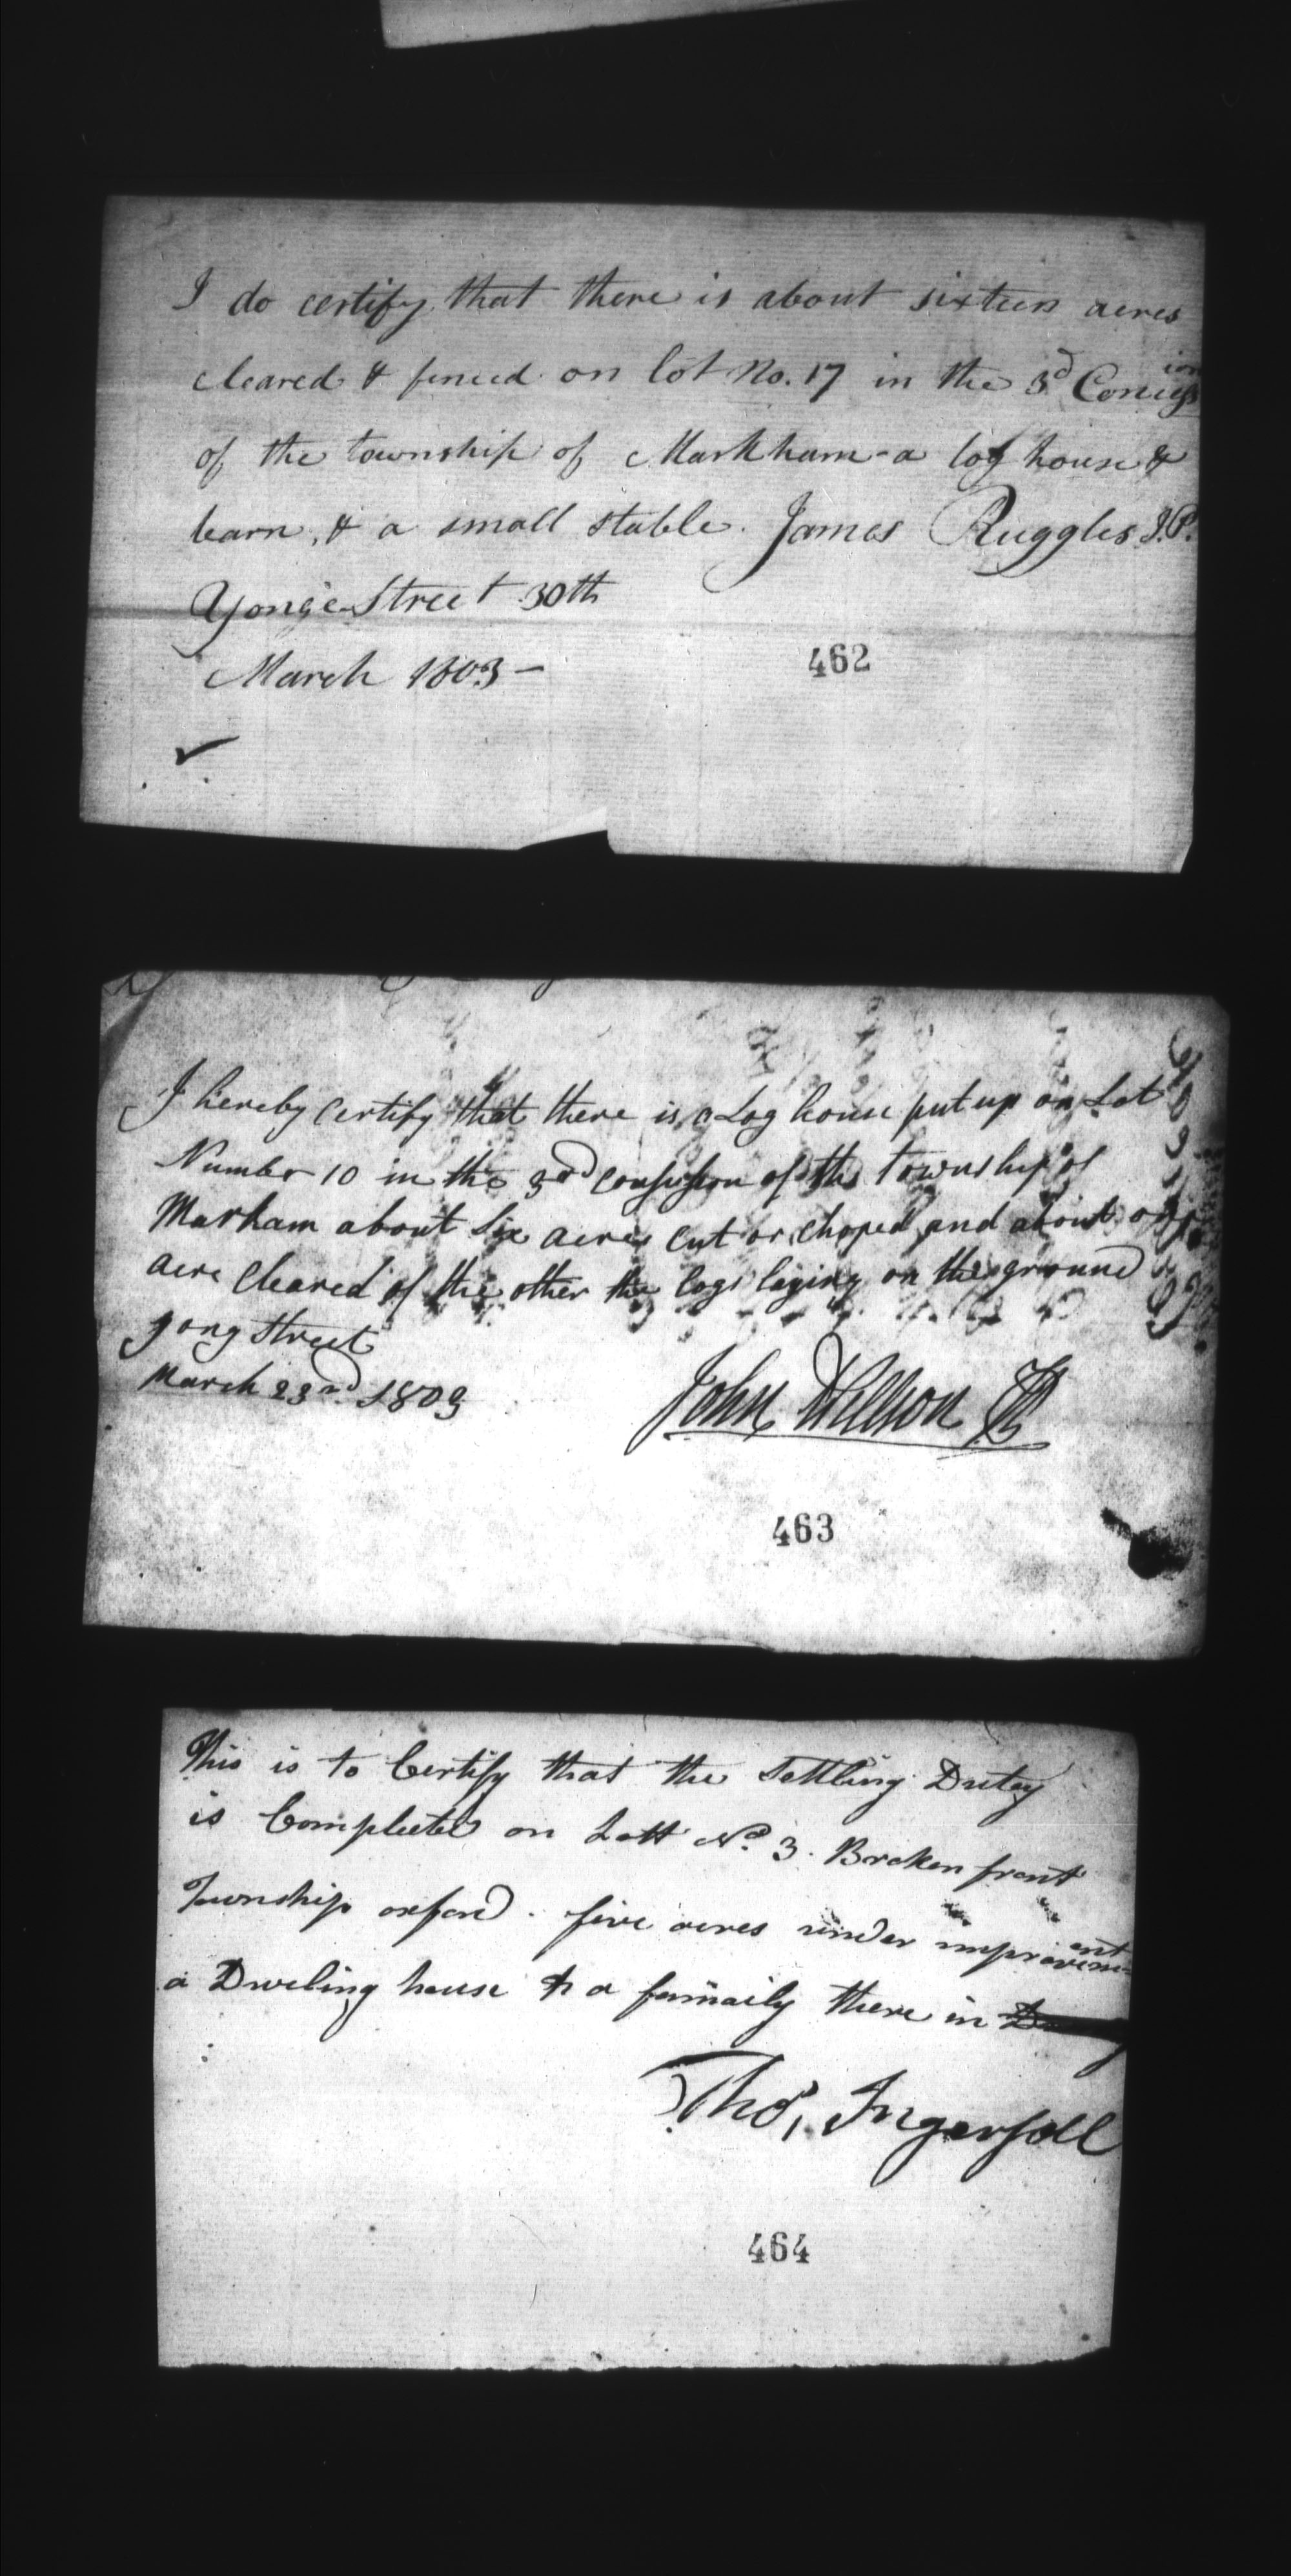 I do certify that there is about sixteen acres
cleared & fenced on lot No. 17 in the 3d Concession
of the township of Markham - a log house &
barn, & a small stable. James Ruggles J.P.
Yonge Street 30th
March 1803 -
462
I hereby certify that there is a Log house put up on Lot
Number 10 in the 3rd consession of the township of
Marham about Six acres cut or choped and about one
acre Cleared of the other the logs laying on the ground
yong street
March 23rd 1803
John Willson JP
463
This is to Certify that the Settling Dutey
is Compleeted on Lott No. 3. Broken front
Township oxford. five acres under improvement
a Dweling house & a famaily there in
Thos, Ingersoll
464